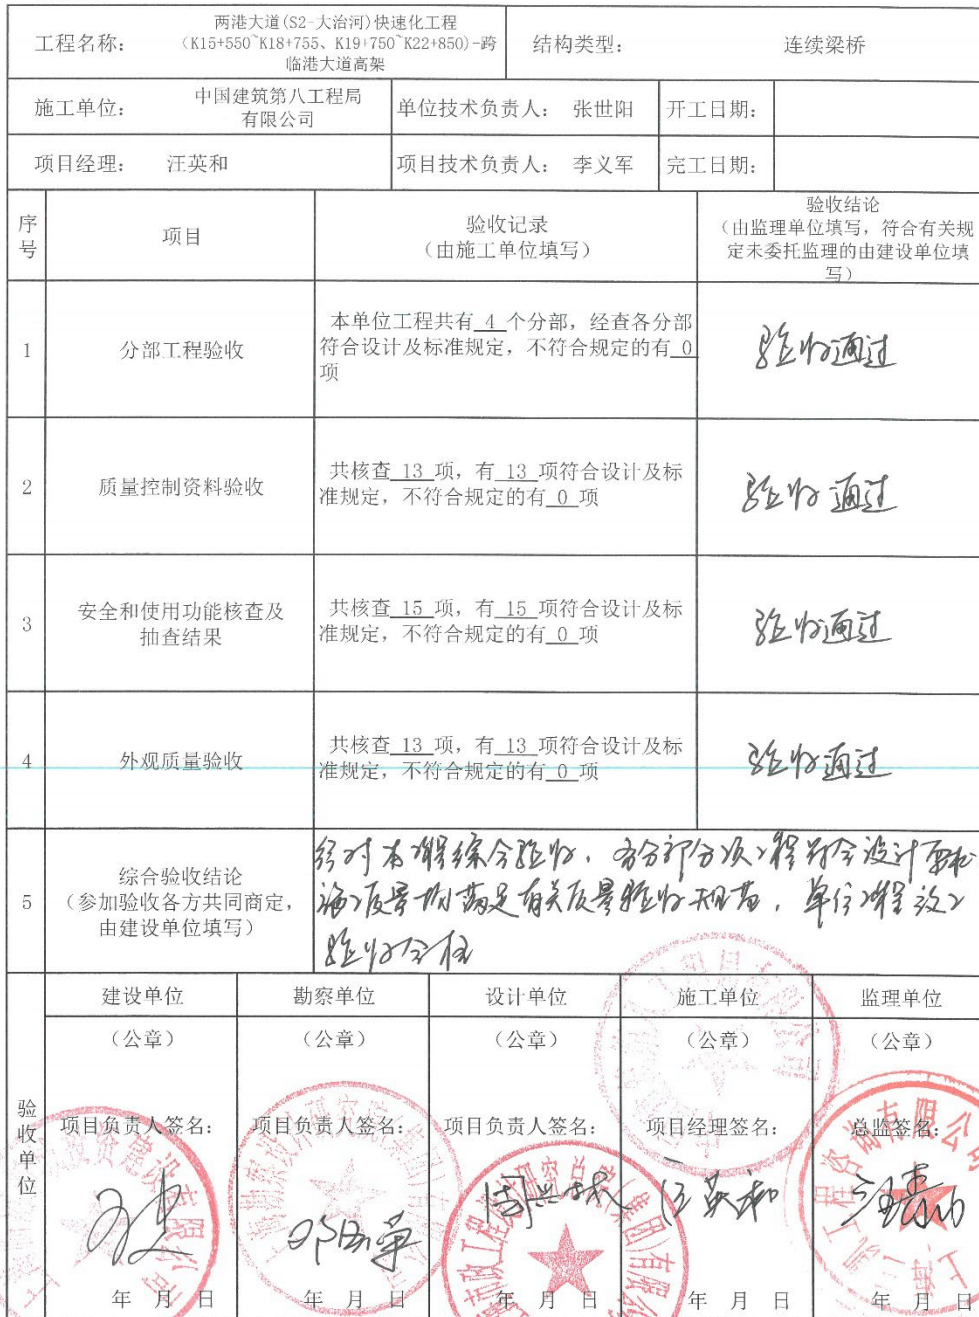 两港大道(S2-大治河)快速化工程
工程名称：
(K15+550~K18+755、K19+750~K22+850)-跨
临港大道高架
结构类型：
连续梁桥
施工单位：
中国建筑第八工程局
有限公司
单位技术负责人： 张世阳
开工日期：
项目经理： 汪英和
项目技术负责人： 李义军
完工日期：
序
号
项目
验收记录
（由施工单位填写）
验收结论
（由监理单位填写，符合有关规
定未委托监理的由建设单位填
写）
1
分部工程验收
本单位工程共有 4 个分部，经查各分部
符合设计及标准规定，不符合规定的有 0
项
验收通过
2
质量控制资料验收
共核查 13 项，有 13 项符合设计及标
准规定，不符合规定的有 0 项
验收通过
3
安全和使用功能核查及
抽查结果
共核查 15 项，有 15 项符合设计及标
准规定，不符合规定的有 0 项
验收通过
4
外观质量验收
共核查 13 项，有 13 项符合设计及标
准规定，不符合规定的有 0 项
验收通过
5
综合验收结论
（参加验收各方共同商定，
由建设单位填写）
经对本工程综合验收，各分部分项工程符合设计要求
施工质量均满足有关质量验收规范，单位工程竣工
验收合格
验
收
单
位
建设单位
勘察单位
设计单位
施工单位
监理单位
（公章）
（公章）
（公章）
（公章）
（公章）
项目负责人签名：
项目负责人签名：
项目负责人签名：
项目经理签名：
总监签名：
汪英和
年 月 日
年 月 日
年 月 日
年 月 日
年 月 日